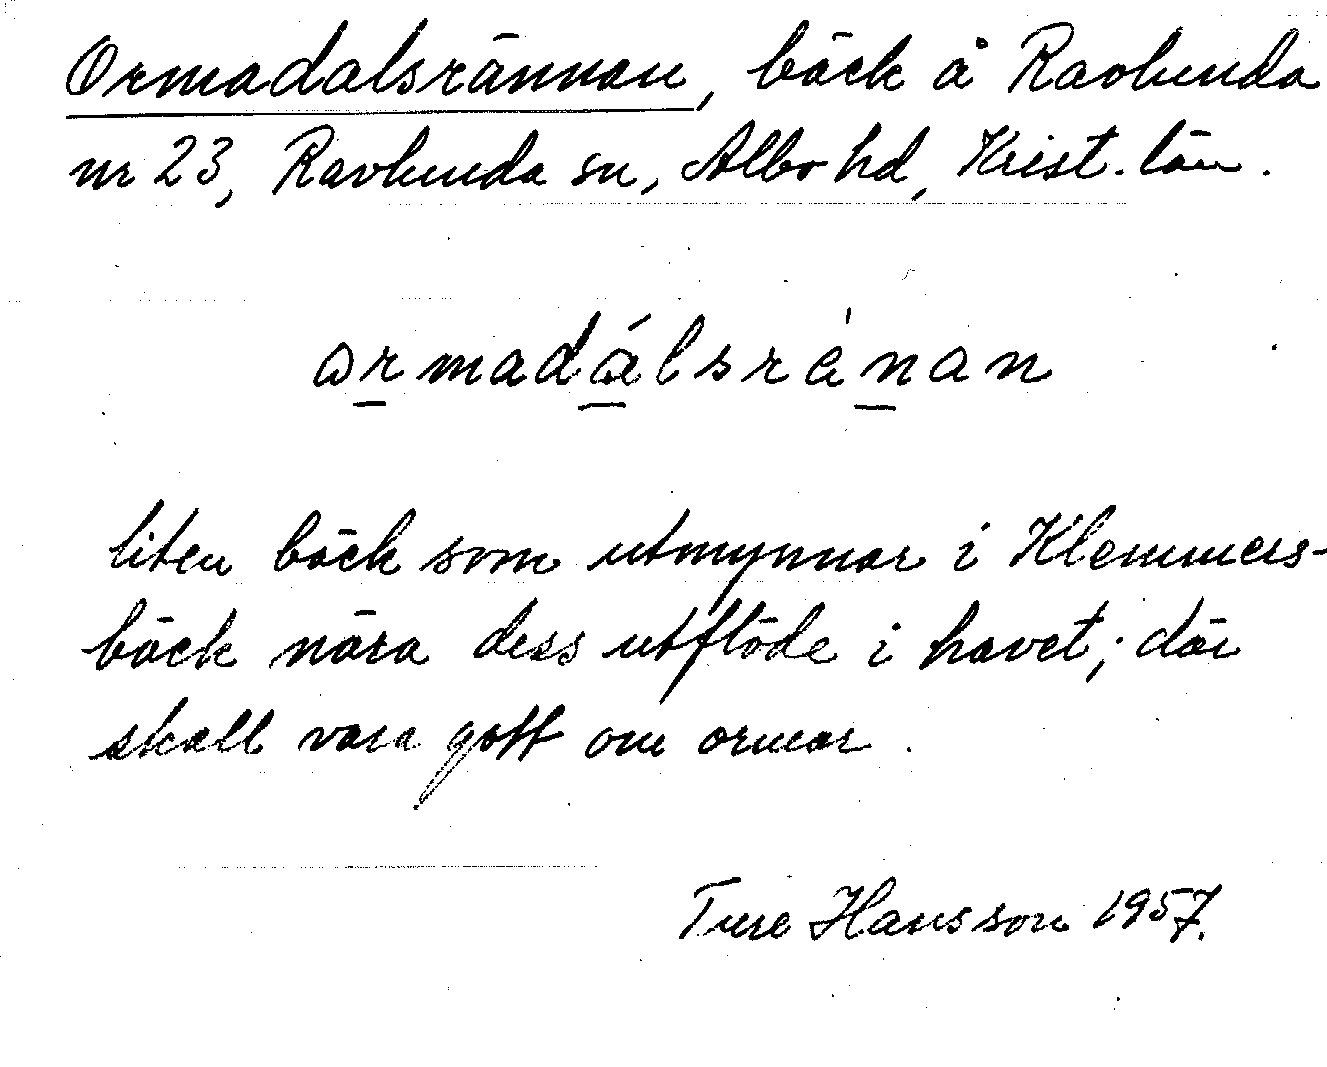 Ormadalsrännan, bäck å Ravlunda
nr 23, Ravlunda sn, Albo hd, Krist. län.
ormadálsrènan
liten bäck som utmynnar i Klemmers-
bäck nära dess utflöde i havet; där
skall vara gott om ormar.
Ture Hansson 1957.